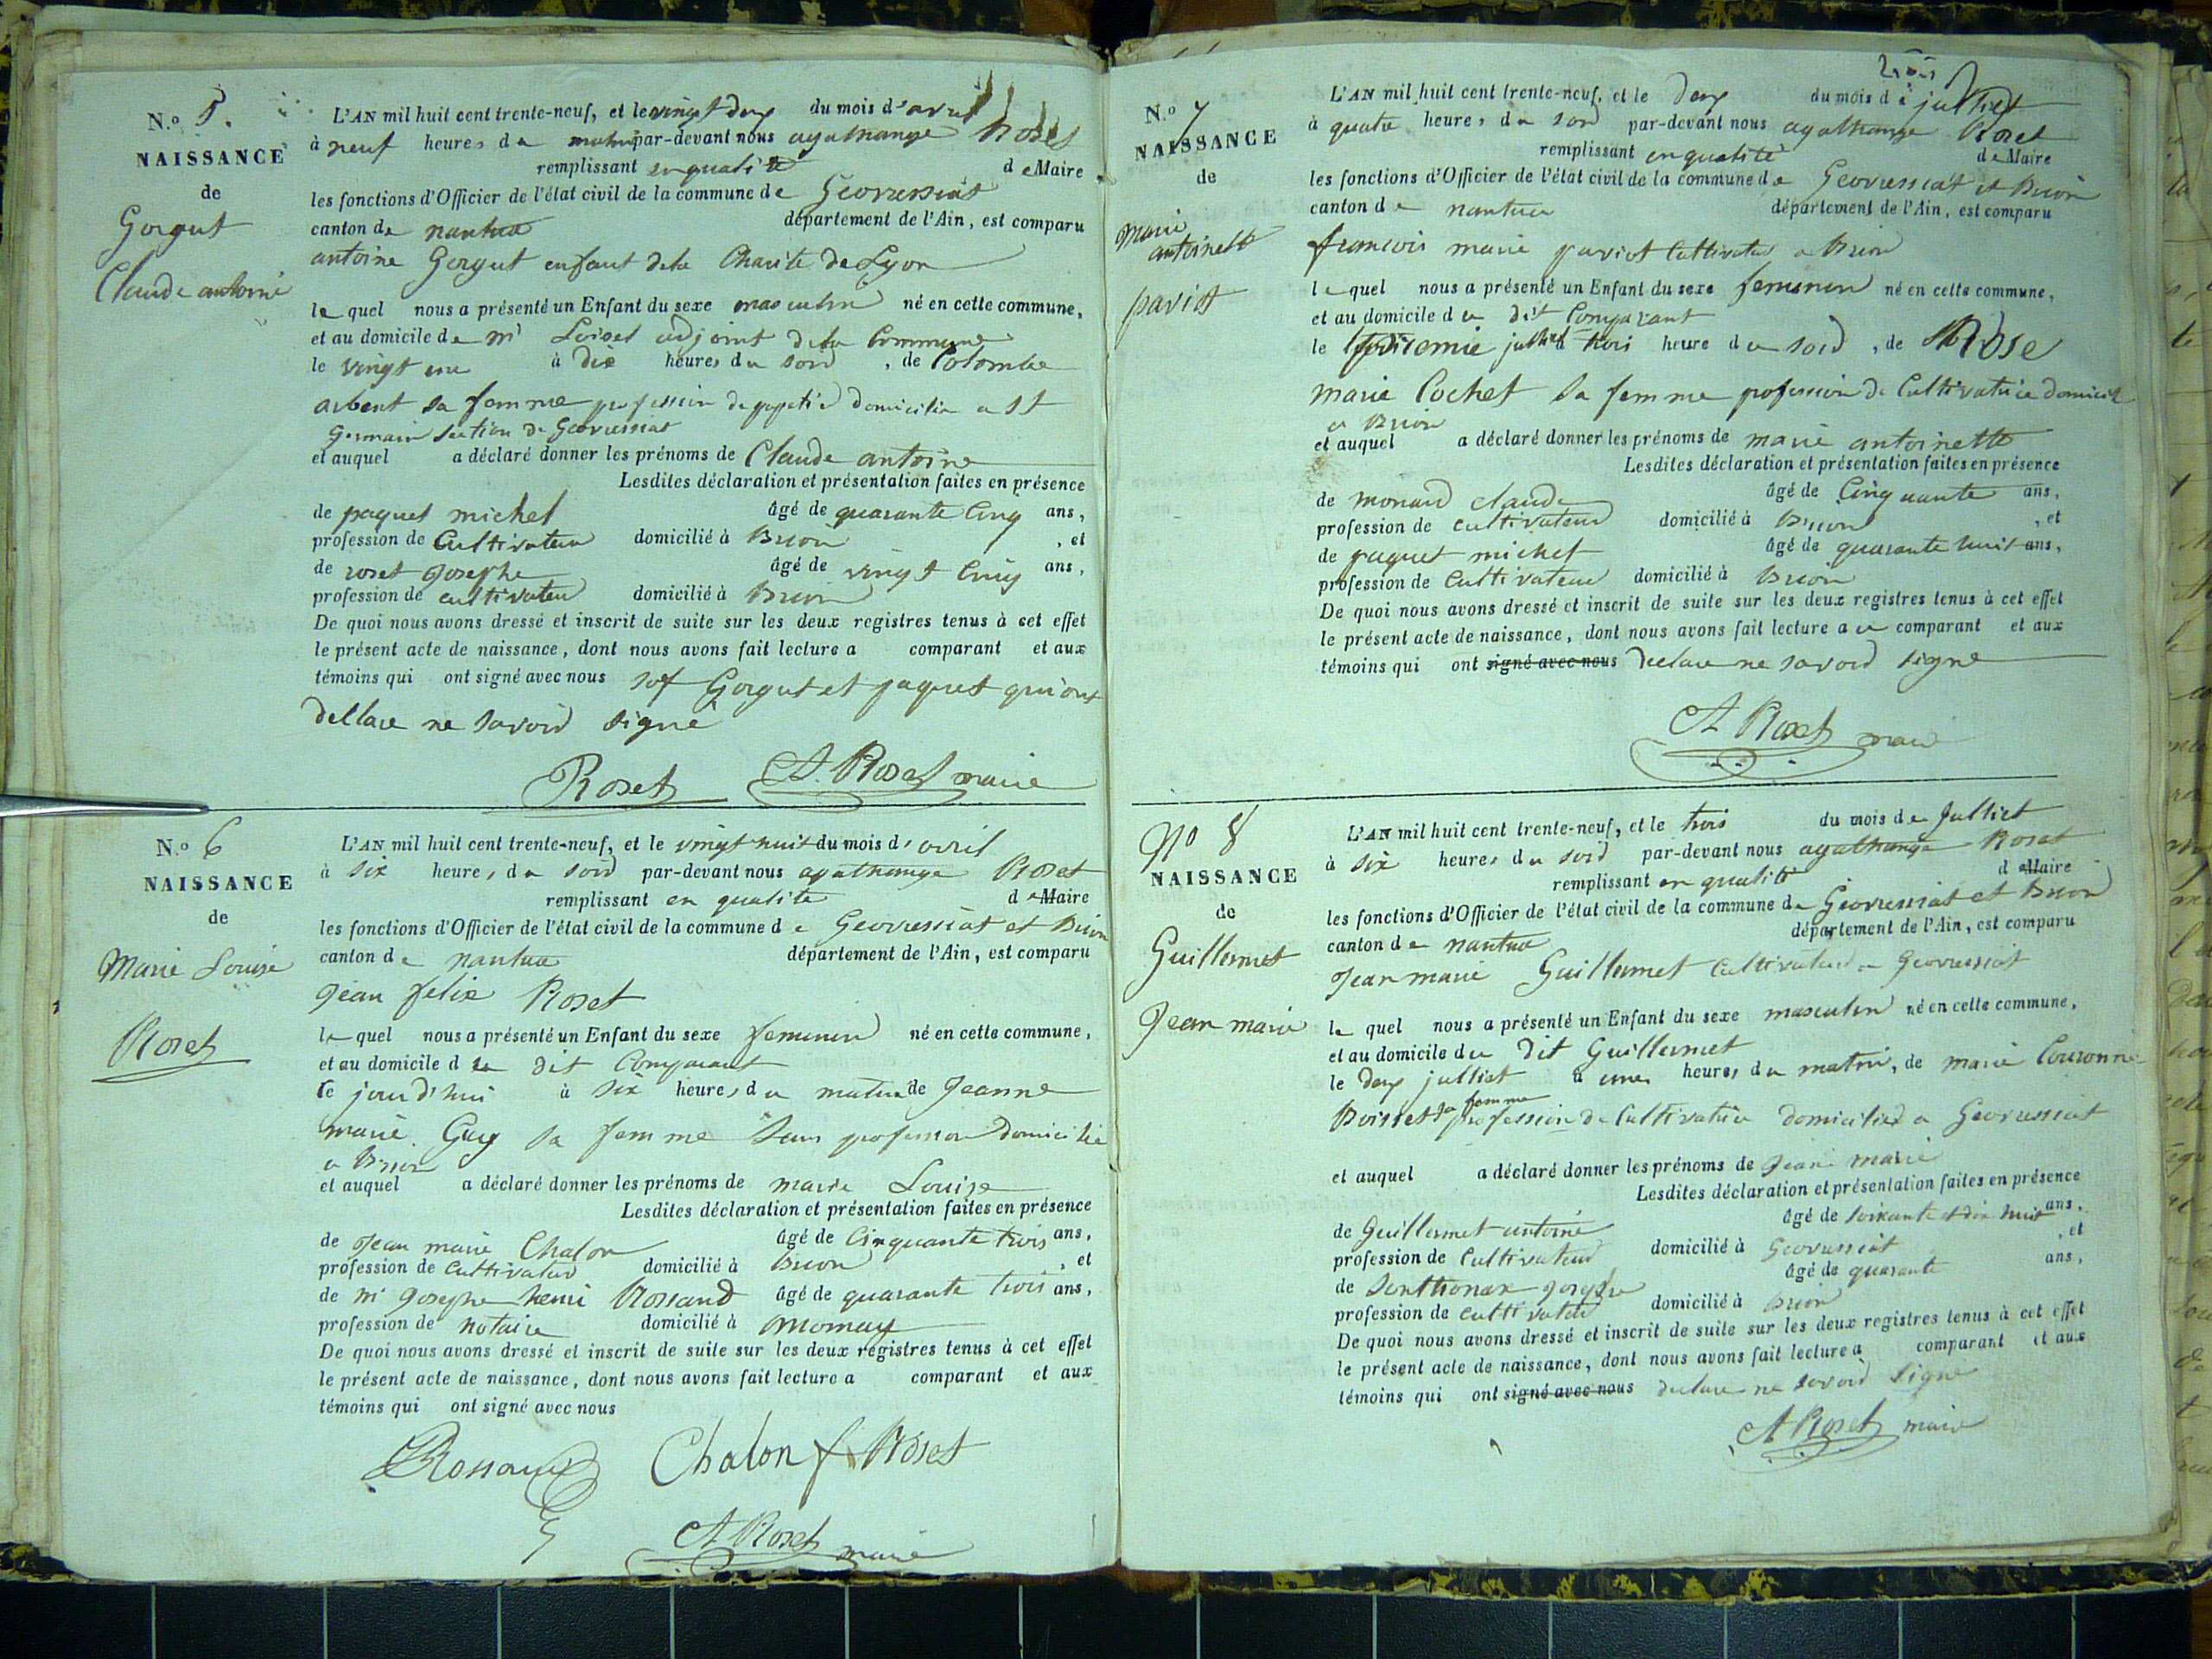 N.o 5.
NAISSANCE
de
Gorgut
Claude antoine
L'AN mil huit cent trente-neuf, et le vingt deux du mois d'avril
à neuf heures de matin par-devant nous agathange Roset
remplissant en qualité de Maire
les fonctions d'Officier de l'état civil de la commune de Geovressiat
canton de nantua département de l'Ain, est comparu
antoine Gorgut enfant dela Charité de Lyon
le quel nous a présenté un Enfant du sexe masculin né en cette commune,
et au domicile de mr Loisel adjoint dela Commune
le vingt un à dix heures du soir, de Colombe
arbent sa femme profession domicilié a St
Germain Section de Geovressiat
et auquel a déclaré donner les prénoms de Claude antoine
Lesdites déclaration et présentation faites en présence
de paquet michel âgé de quarante Cinq ans,
profession de Cultivateur domicilié à Brion, et
de roset Josephe âgé de vingt Cinq ans,
profession de cultivateur domicilié à Brion
De quoi nous avons dressé et inscrit de suite sur les deux registres tenus à cet effet
le présent acte de naissance, dont nous avons fait lecture a comparant et aux
témoins qui ont signé avec nous sof Gorgut et paquet qui ont
dellare ne savoir signé
Roset A. Roset maire
N.o 6
NAISSANCE
de
Marie Louise
Roset
L'AN mil huit cent trente-neuf, et le vingt huit du mois d'avril
à six heures du soir par-devant nous agathange Roset
remplissant en qualité de Maire
les fonctions d'Officier de l'état civil de la commune de Geovressiat et Brion
canton de nantua département de l'Ain, est comparu
Jean felix Roset
le quel nous a présenté un Enfant du sexe feminin né en cette commune,
et au domicile du dit Comparant
le jourd'hui à six heures du matin de Jeanne
marie Guy sa femme sans profession domicilié
a Brion
et auquel a déclaré donner les prénoms de marie Louise
Lesdites déclaration et présentation faites en présence
de Jean marie Chalon âgé de Cinquante trois ans,
profession de Cultivateur domicilié à Brion, et
de mr Josephe henri Rossand âgé de quarante trois ans,
profession de notaire domicilié à mornay
De quoi nous avons dressé et inscrit de suite sur les deux registres tenus à cet effet
le présent acte de naissance, dont nous avons fait lecture a comparant et aux
témoins qui ont signé avec nous
Rossand Chalon f. Roset
A Roset maire
N.o 7
NAISSANCE
de
marie
antoinette
paviot
L'AN mil huit cent trente-neuf, et le deux du mois de julliet
à quatre heures du soir par-devant nous agathange Roset
remplissant en qualité de Maire
les fonctions d'Officier de l'état civil de la commune de Geovressiat et Brion
canton de nantua département de l'Ain, est comparu
francois marie paviot Cultivateur a Brion
le quel nous a présenté un Enfant du sexe feminin né en cette commune,
et au domicile du dit Comparant
le julliet à trois heure du soir, de Rose
marie Cochet sa femme profession de Cultivatrice domicilié
a Brion
et auquel a déclaré donner les prénoms de marie antoinette
Lesdites déclaration et présentation faites en présence
de monard claude âgé de Cinquante ans,
profession de cultivateur domicilié à Brion, et
de paquet michel âgé de quarante huit ans,
profession de Cultivateur domicilié à Brion
De quoi nous avons dressé et inscrit de suite sur les deux registres tenus à cet effet
le présent acte de naissance, dont nous avons fait lecture a u comparant et aux
témoins qui ont signé avec nous declare ne savoir signe
A Roset maire
No 8
NAISSANCE
de
Guillermet
Jean marie
L'AN mil huit cent trente-neuf, et le trois du mois de Julliet
à six heures du soir par-devant nous agathange Roset
remplissant en qualité de Maire
les fonctions d'Officier de l'état civil de la commune de Geovressiat et Brion
canton de nantua département de l'Ain, est comparu
Jean marie Guillermet Cultivateur a Geovressiat
le quel nous a présenté un Enfant du sexe masculin né en cette commune,
et au domicile du dit Guillermet
le deux julliet à une heures du matin, de marie Couronne
Boisset sa femme profession de Cultivatrice domicilied a Geovressiat
et auquel a déclaré donner les prénoms de Jean marie
Lesdites déclaration et présentation faites en présence
de Guillermet antoine âgé de soixante et dix huit ans,
profession de Cultivateur domicilié à Geovressiat, et
de Sonthonax Josephe âgé de quarante ans,
profession de cultivateur domicilié à Brion
De quoi nous avons dressé et inscrit de suite sur les deux registres tenus à cet effet
le présent acte de naissance, dont nous avons fait lecture à comparant et aux
témoins qui ont signé avec nous declare ne savoir signe
A Roset maire